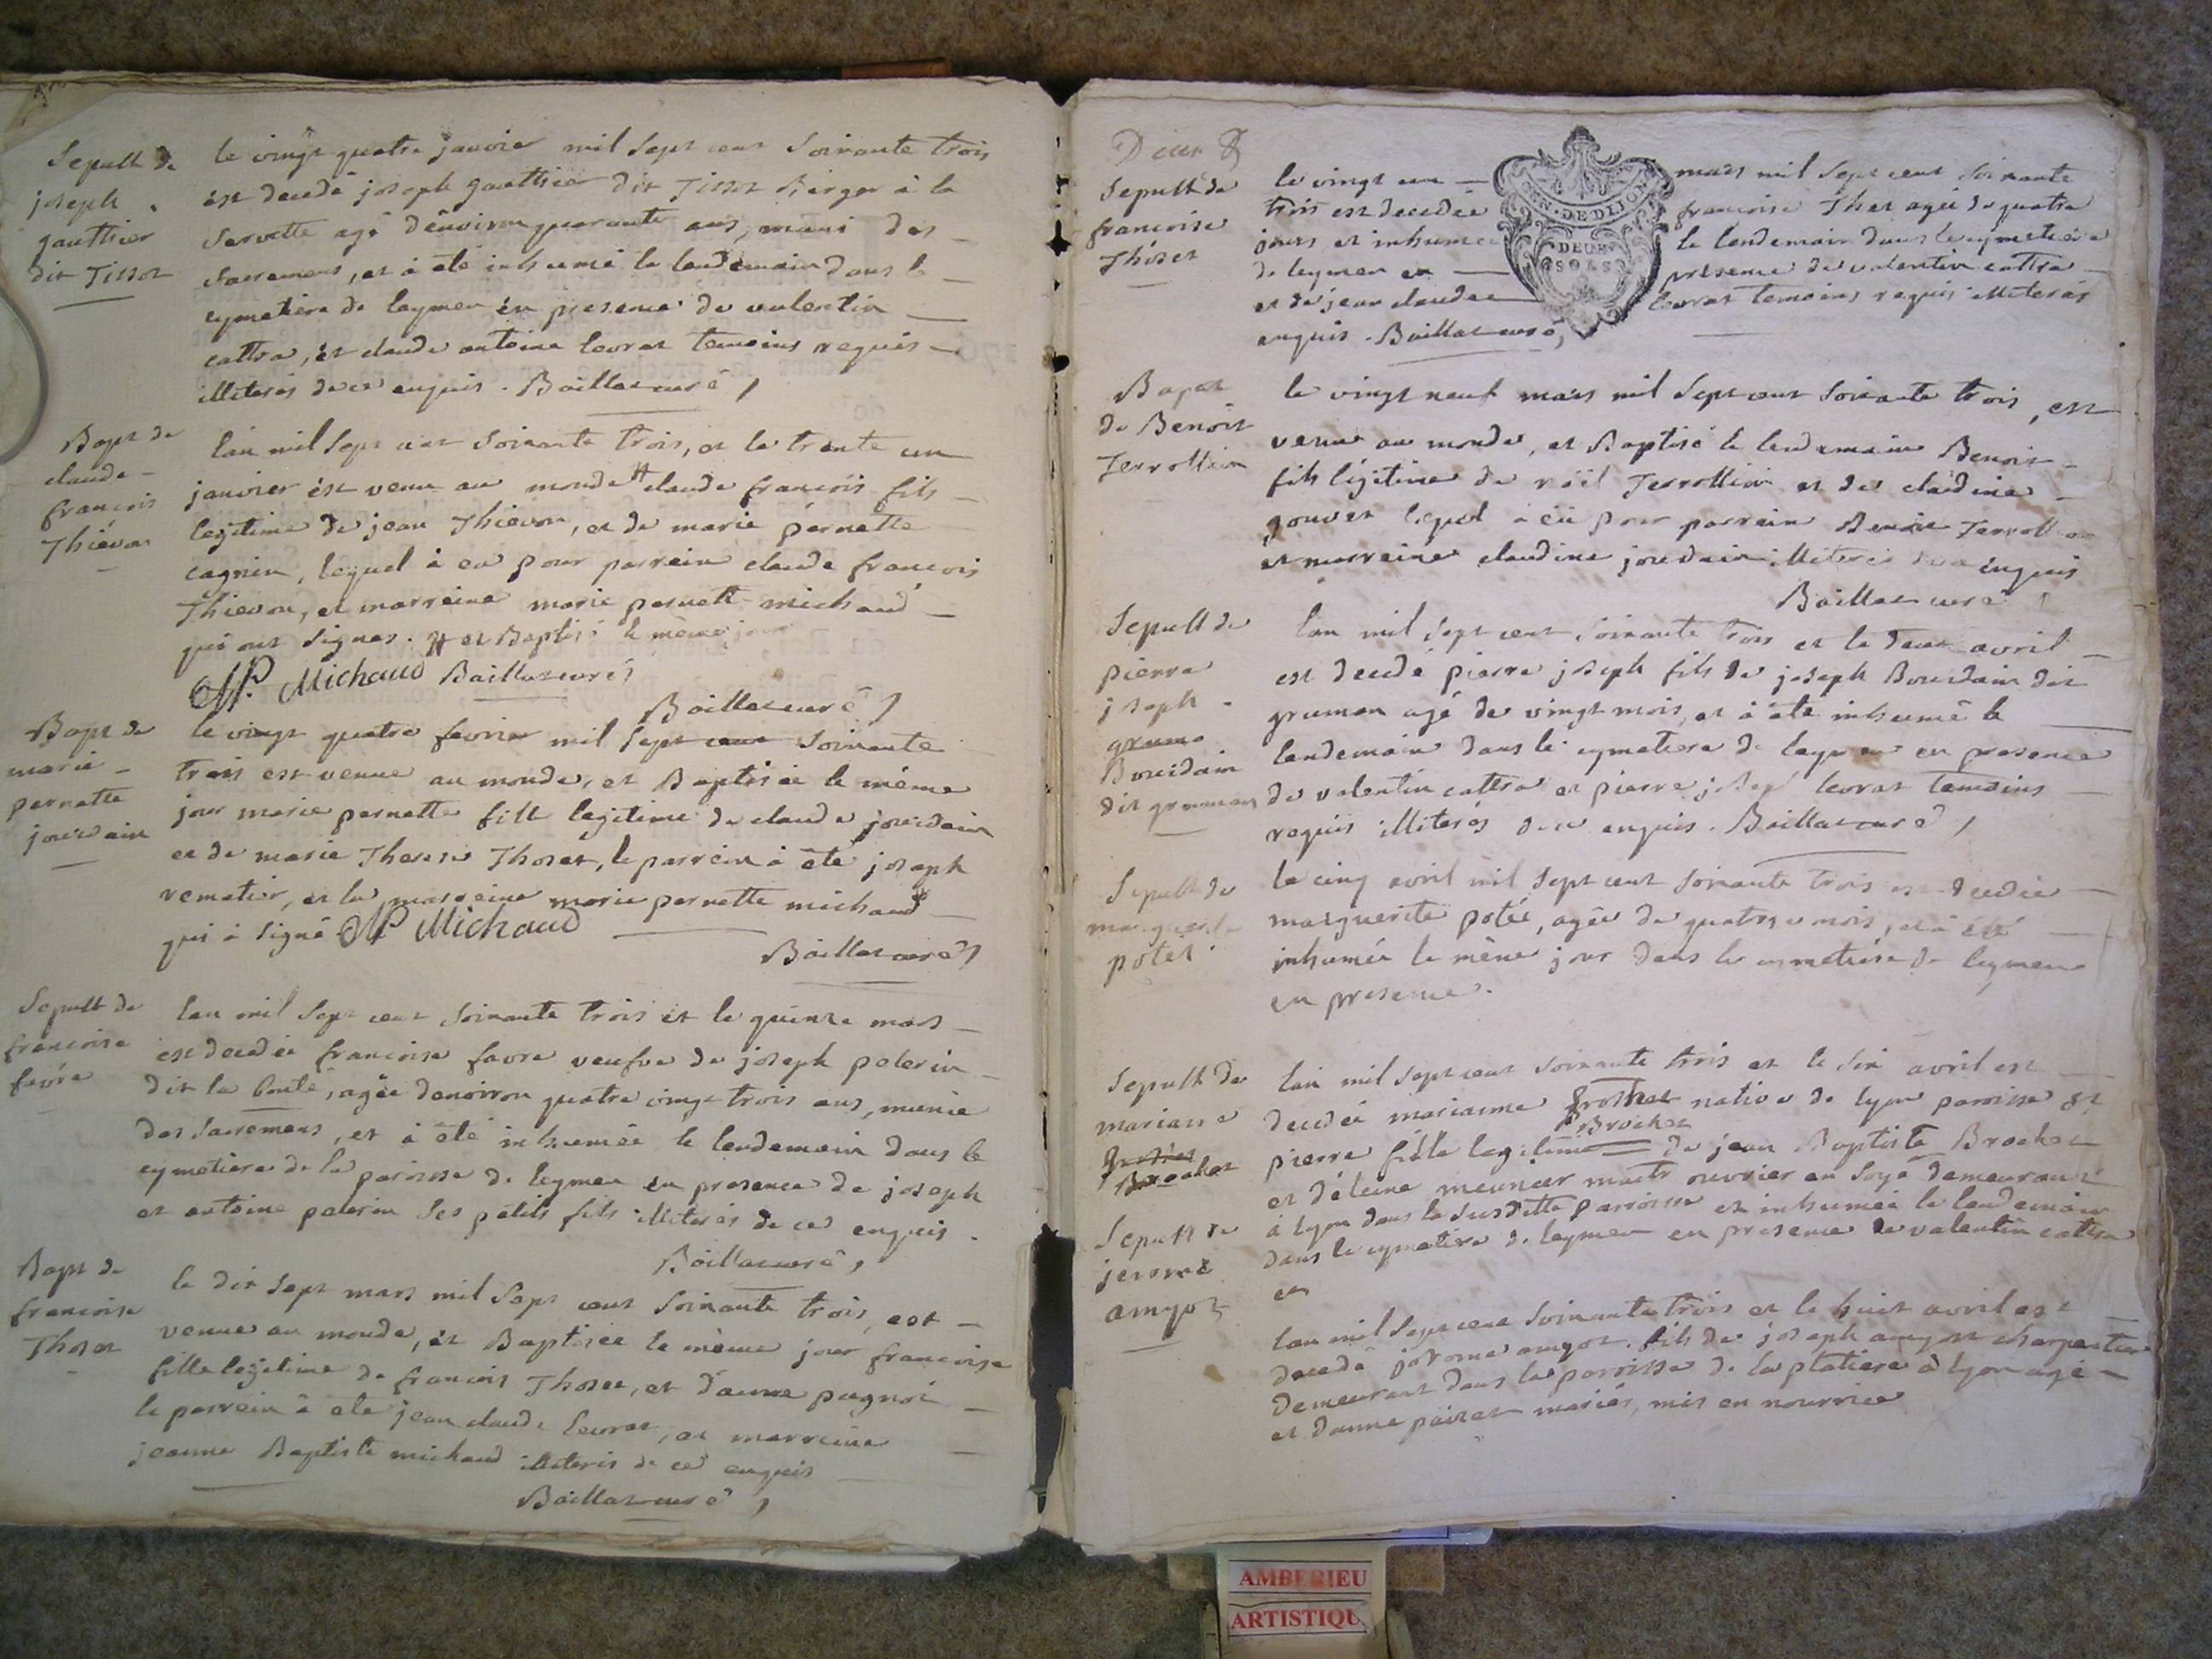 Sepult de
joseph
gauthier
dit Tissot
le vingt quatre janvier mil sept cent soixante trois
est decedé joseph gauthier dit Tissot Berger à la
servette agé d'environ quarante ans, muni des
sacremens, et à été inhumé le lendemain dans le
cymetiere de leymen en presence de valentin
cattra, et claude antoine levrat temoins requis
illiterés de ce enquis. Baillat curé
Bapt de
claude
francois
Thievon
lan mil sept cent soixante trois, et le trente un
janvier est venu au monde # claude francois fils
legitime de jean Thievon, et de marie pernette
cagnin, lequel à eu pour parrein claude francois
Thievon, et marreine marie pernette michaud
qui ont signes. # et Baptisé le même jour
MP. Michaud Baillat curé
Baillat curé
Bapt de
marie
pernette
jourdain
le vingt quatre fevrier mil sept cent soixante
trois est venue au monde, et Baptisée le même
jour marie pernette fille legitime de claude jourdain
et de marie Therese Thoset, le parrein à été joseph
vematier, et la marreine marie pernette michaud
qui à signé MP Michaud
Baillat curé
Sepult de
francoise
favre
lan mil sept cent soixante trois et le quinze mars
est decedée francoise favre veufve de joseph pelerin
dit la bonté, agée denviron quatre vingt trois ans, munie
des sacremens, et à été inhumée le lendemain dans le
cymetiere de la paroisse de leymen en presence de joseph
et antoine pelerin ses petits fils illiterés de ce enquis.
Baillat curé,
Bapt de
francoise
Thoset
le dix sept mars mil sept cent soixante trois, est
venue au monde, et Baptisée le même jour francoise
fille legitime de francois Thoset, et d'anne pugnié
le parrein à été jean claude levrat, et marreine
jeanne Baptiste michaud illiteris de ce enquis
Baillat curé,
Deux
Sepult de
francoise
Thoset
GEN. DE DIJON
DEUX
SOLS
le vingt un mars mil sept cent soixante
trois est decedée francoise Thoset agée de quatre
jours et inhumée le lendemain dans le cymetiere
de leymen en presence de valentin cattra
et de jean claude levrat temoins requis illiterés
enquis. Baillat curé,
Bapt
de Benoit
Terrollion
le vingt neuf mars mil sept cent soixante trois, est
venu au monde, et Baptisé le lendemain Benoit
fils légitime de noël Terrollion et de claudine
gouvet lequel à eü pour parrein Benoit Terrollion
et marreine claudine jourdain illiterés de ce enquis
Baillat curé
Sepult de
pierre
joseph
grumo
Bourdain
dit grumau
lan mil sept cent soixante trois et le deux avril
est decedé pierre joseph fils de joseph Bourdain dit
grumau agé de vingt mois, et à été inhumé le
lendemain dans le cymetiere de leymen en presence
de valentin cattra et pierre joseph levrat temoins
requis illiterés de ce enquis. Baillat curé,
Sepult de
marguerite
potet
le cinq avril mil sept cent soixante trois est decedée
marguerite potée, agée de quatorze mois, et à été
inhumée le même jour dans le cymetiere de leymen
en presence.
Sepult de
marianne
Brochet
lan mil sept cent soixante trois et le six avril est
decedée marianne native de lyon paroisse st
Brochet
pierre fille legitime de jean Baptiste Brochet
et d'eleine meunier maitre ouvrier en soye demeurant
à lyon dans la susditte parroisse et inhumée le lendemain
dans le cymetiere de leymen en presence de valentin cattra
et
Sepult de
jerome
amyot
lan mil sept cent soixante trois et le huit avril est
decedé jerome amyot. fils de joseph amyot charpentier
demeurant dans la parroisse de la platiere à lyon agé
et danne pairet mariés, mis en nourrice
AMBERIEU
ARTISTIQU